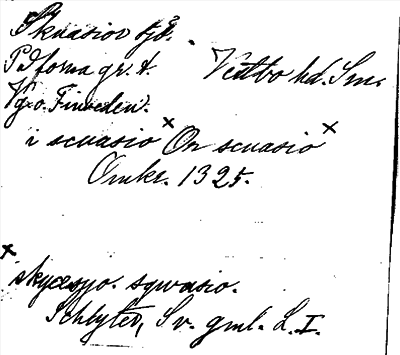 Skuasiov sjö.
På forna gr. t. Västbo hd. Sm.
Vg. o. Finveden.
i scuasio × On scuasio ×
Omkr. 1325.
× skyæsyo. sqwasio.
Schlyter, Sv. gml. L. I.